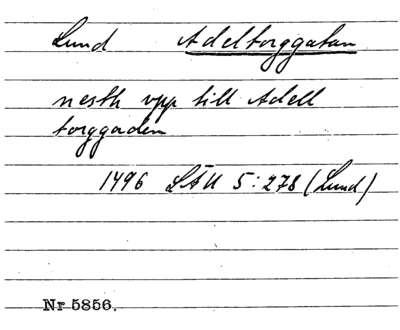 Lund Adeltorggatan
nesth vpp till Adell
torggarden
1496 LÄU 5:278 (Lund)
Nr 5856.